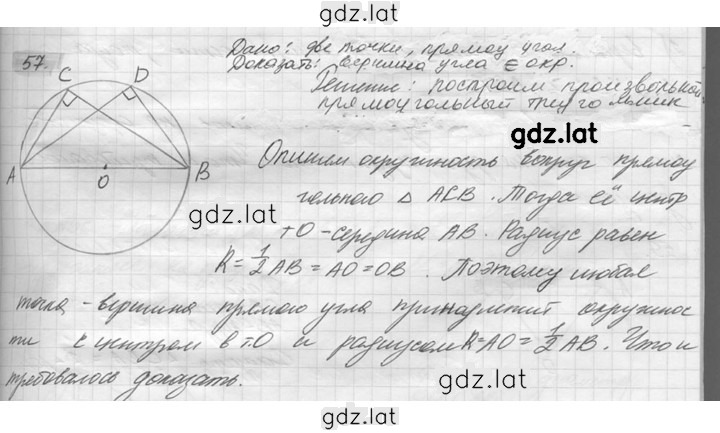 gdz.lat
57.
Дано: две точки, прямой угол.
Доказать: вершина угла ∈ окр.
Решение: построим произвольной
прямоугольный треугольник
C D
A O B
gdz.lat
Опишем окружность вокруг прямоу
гольного △ ACB. Тогда её центр
т O - середина AB. Радиус равен
gdz.lat
R = 1/2 AB = AO = OB. Поэтому любая
точка - вершина прямого угла принадлежит окружнос
ти с центром в т.O и радиусом R = AO = 1/2 AB. Что и
требовалось доказать.
gdz.lat
gdz.lat